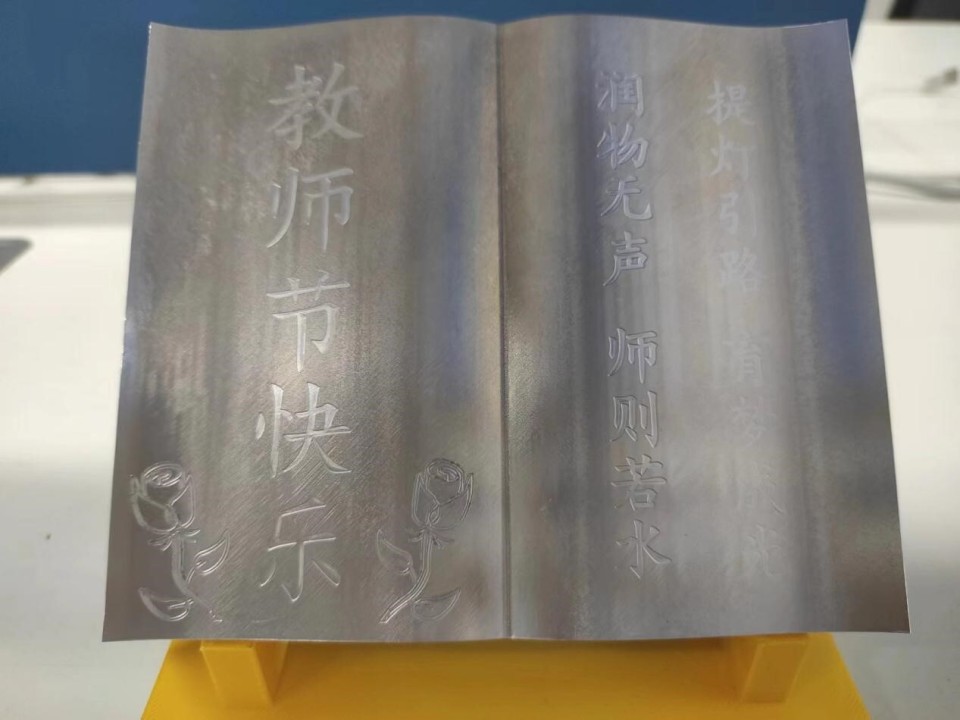 提灯引路 育梦成光
润物无声 师则若水
教师节快乐